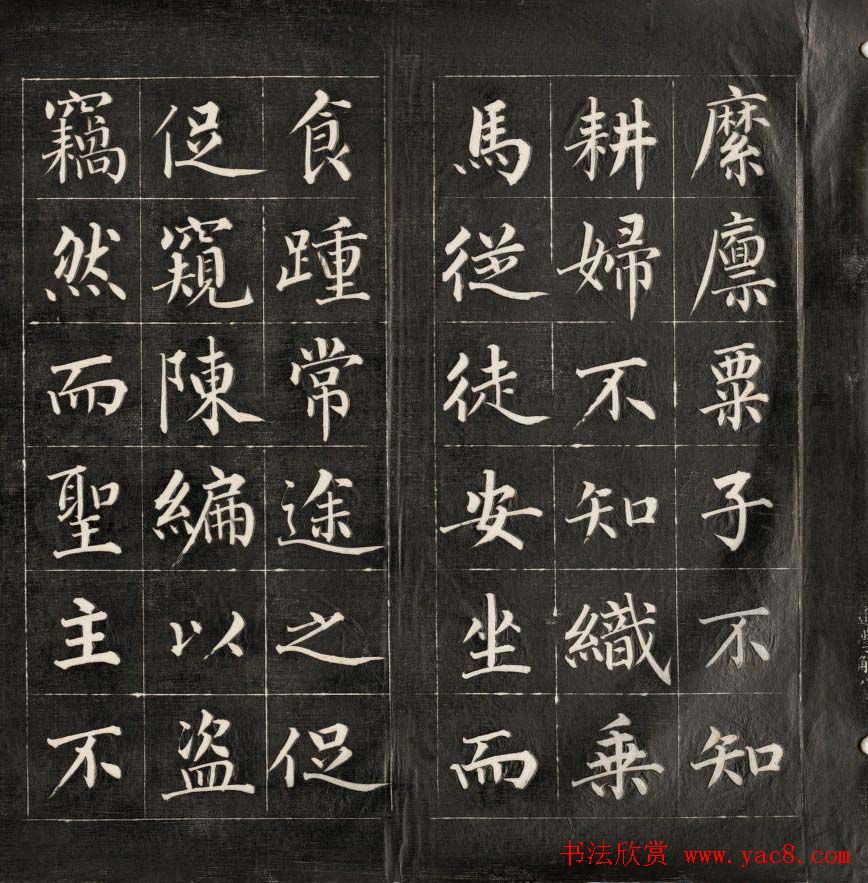 縻廩粟子不知
耕婦不知織乗
馬從徒安坐而
食踵常途之促
促窺陳編以盗
竊然而聖主不
书法欣赏 www.yac8.com